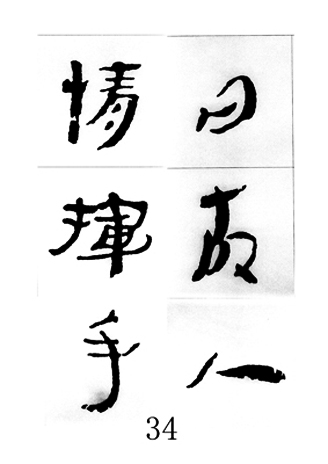 日故人
情揮手
34